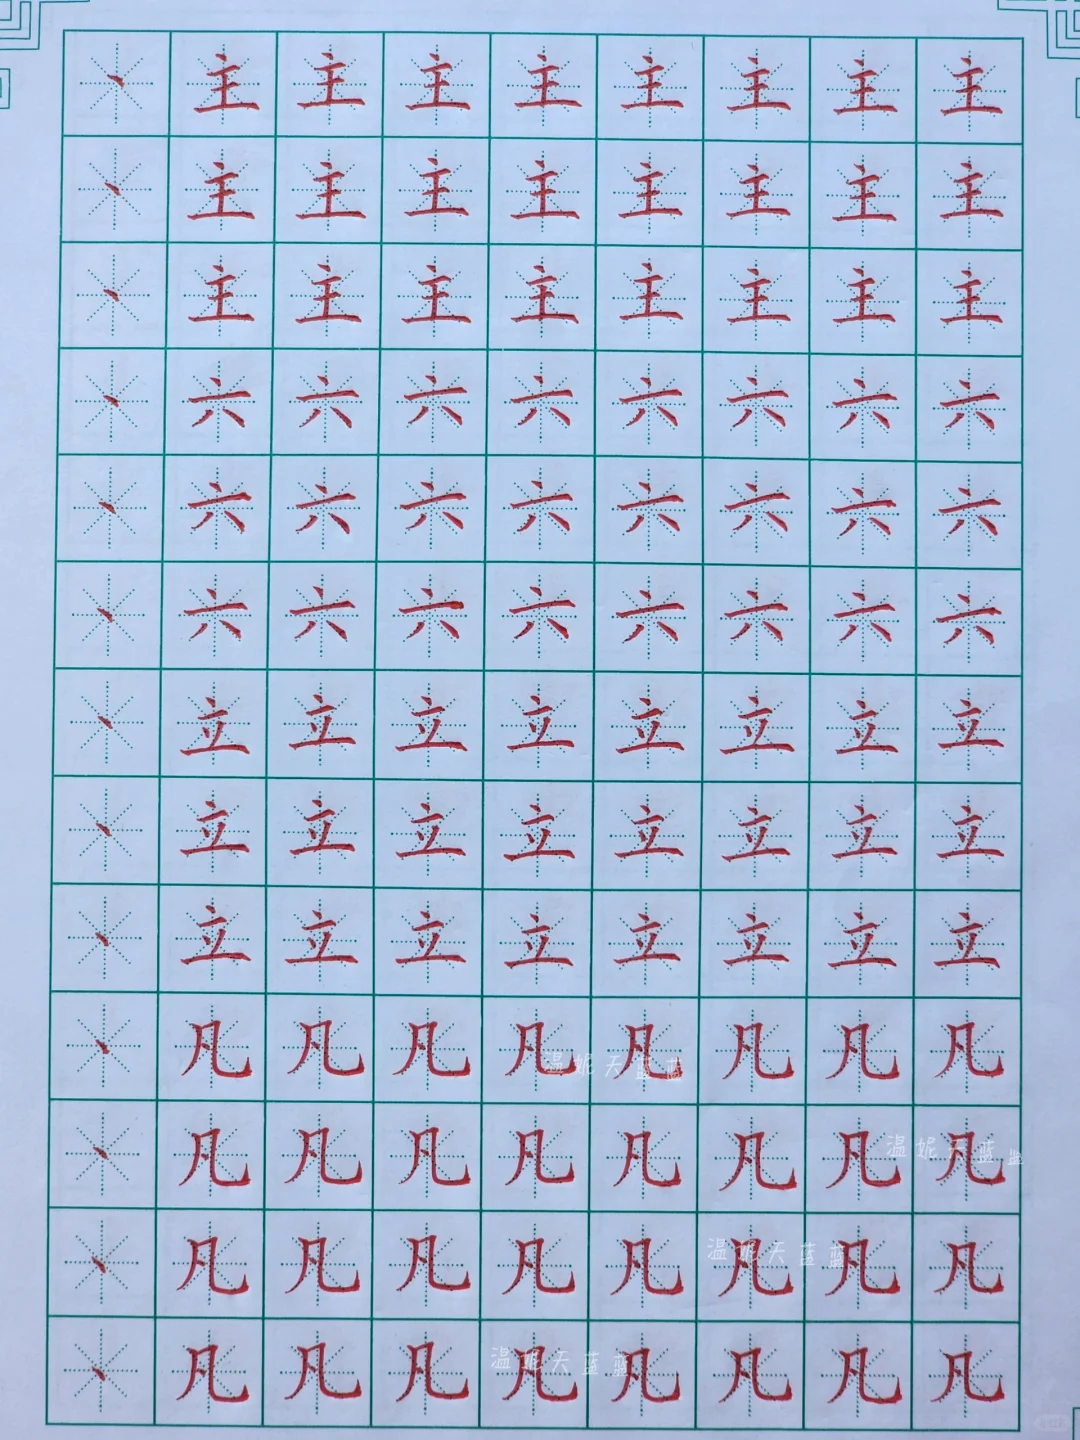 丶主主主主主主主主
丶主主主主主主主主
丶主主主主主主主主
丶六六六六六六六六
丶六六六六六六六六
丶六六六六六六六六
丶立立立立立立立立
丶立立立立立立立立
丶立立立立立立立立
丶凡凡凡凡凡凡凡凡
温妮天蓝蓝
丶凡凡凡凡凡凡凡凡
温妮天蓝蓝
丶凡凡凡凡凡凡凡凡
温妮天蓝蓝
丶凡凡凡凡凡凡凡凡
温妮天蓝蓝